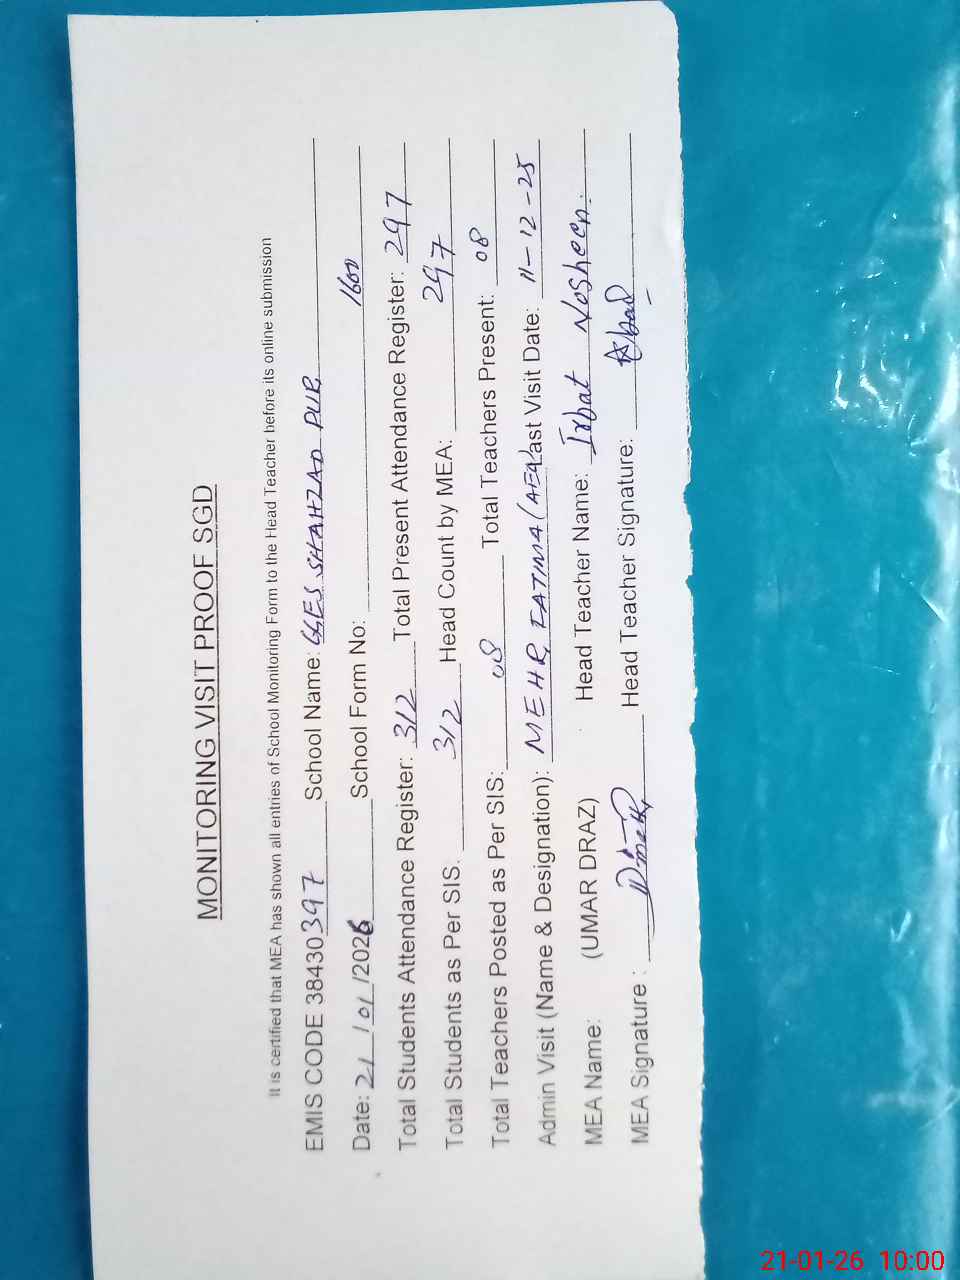 MONITORING VISIT PROOF SGD
It is certified that MEA has shown all entries of School Monitoring Form to the Head Teacher before its online submission
EMIS CODE 38430397 School Name: GGES SHAHZAD PUR
Date: 21/01/2026 School Form No: 1600
Total Students Attendance Register: 312 Total Present Attendance Register: 297
Total Students as Per SIS. 312 Head Count by MEA: 297
Total Teachers Posted as Per SIS: 08 Total Teachers Present: 08
Admin Visit (Name & Designation): MEHR FATIMA (AEO) Last Visit Date: 11-12-25
MEA Name: (UMAR DRAZ) Head Teacher Name: Nosheen
MEA Signature : Head Teacher Signature:
21-01-26 10:00